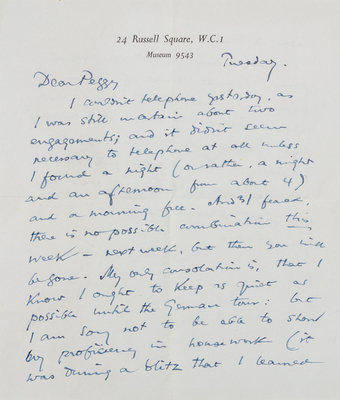 24 Russell Square, W.C.1
Museum 9543
Tuesday.
Dear Peggy
I couldn't telephone yesterday, as
I was still uncertain about two
engagements; and it didn't seem
necessary to telephone at all unless
I found a night (or rather, a night
and an afternoon from about 4)
and a morning free. And I fear,
there is no possible combination this
week – next week, but then you will
be gone. My only consolation is, that I
know I ought to keep as quiet as
possible until the German tour: but
I am sorry not to be able to show
my proficiency in housework (it
was during a blitz that I learned